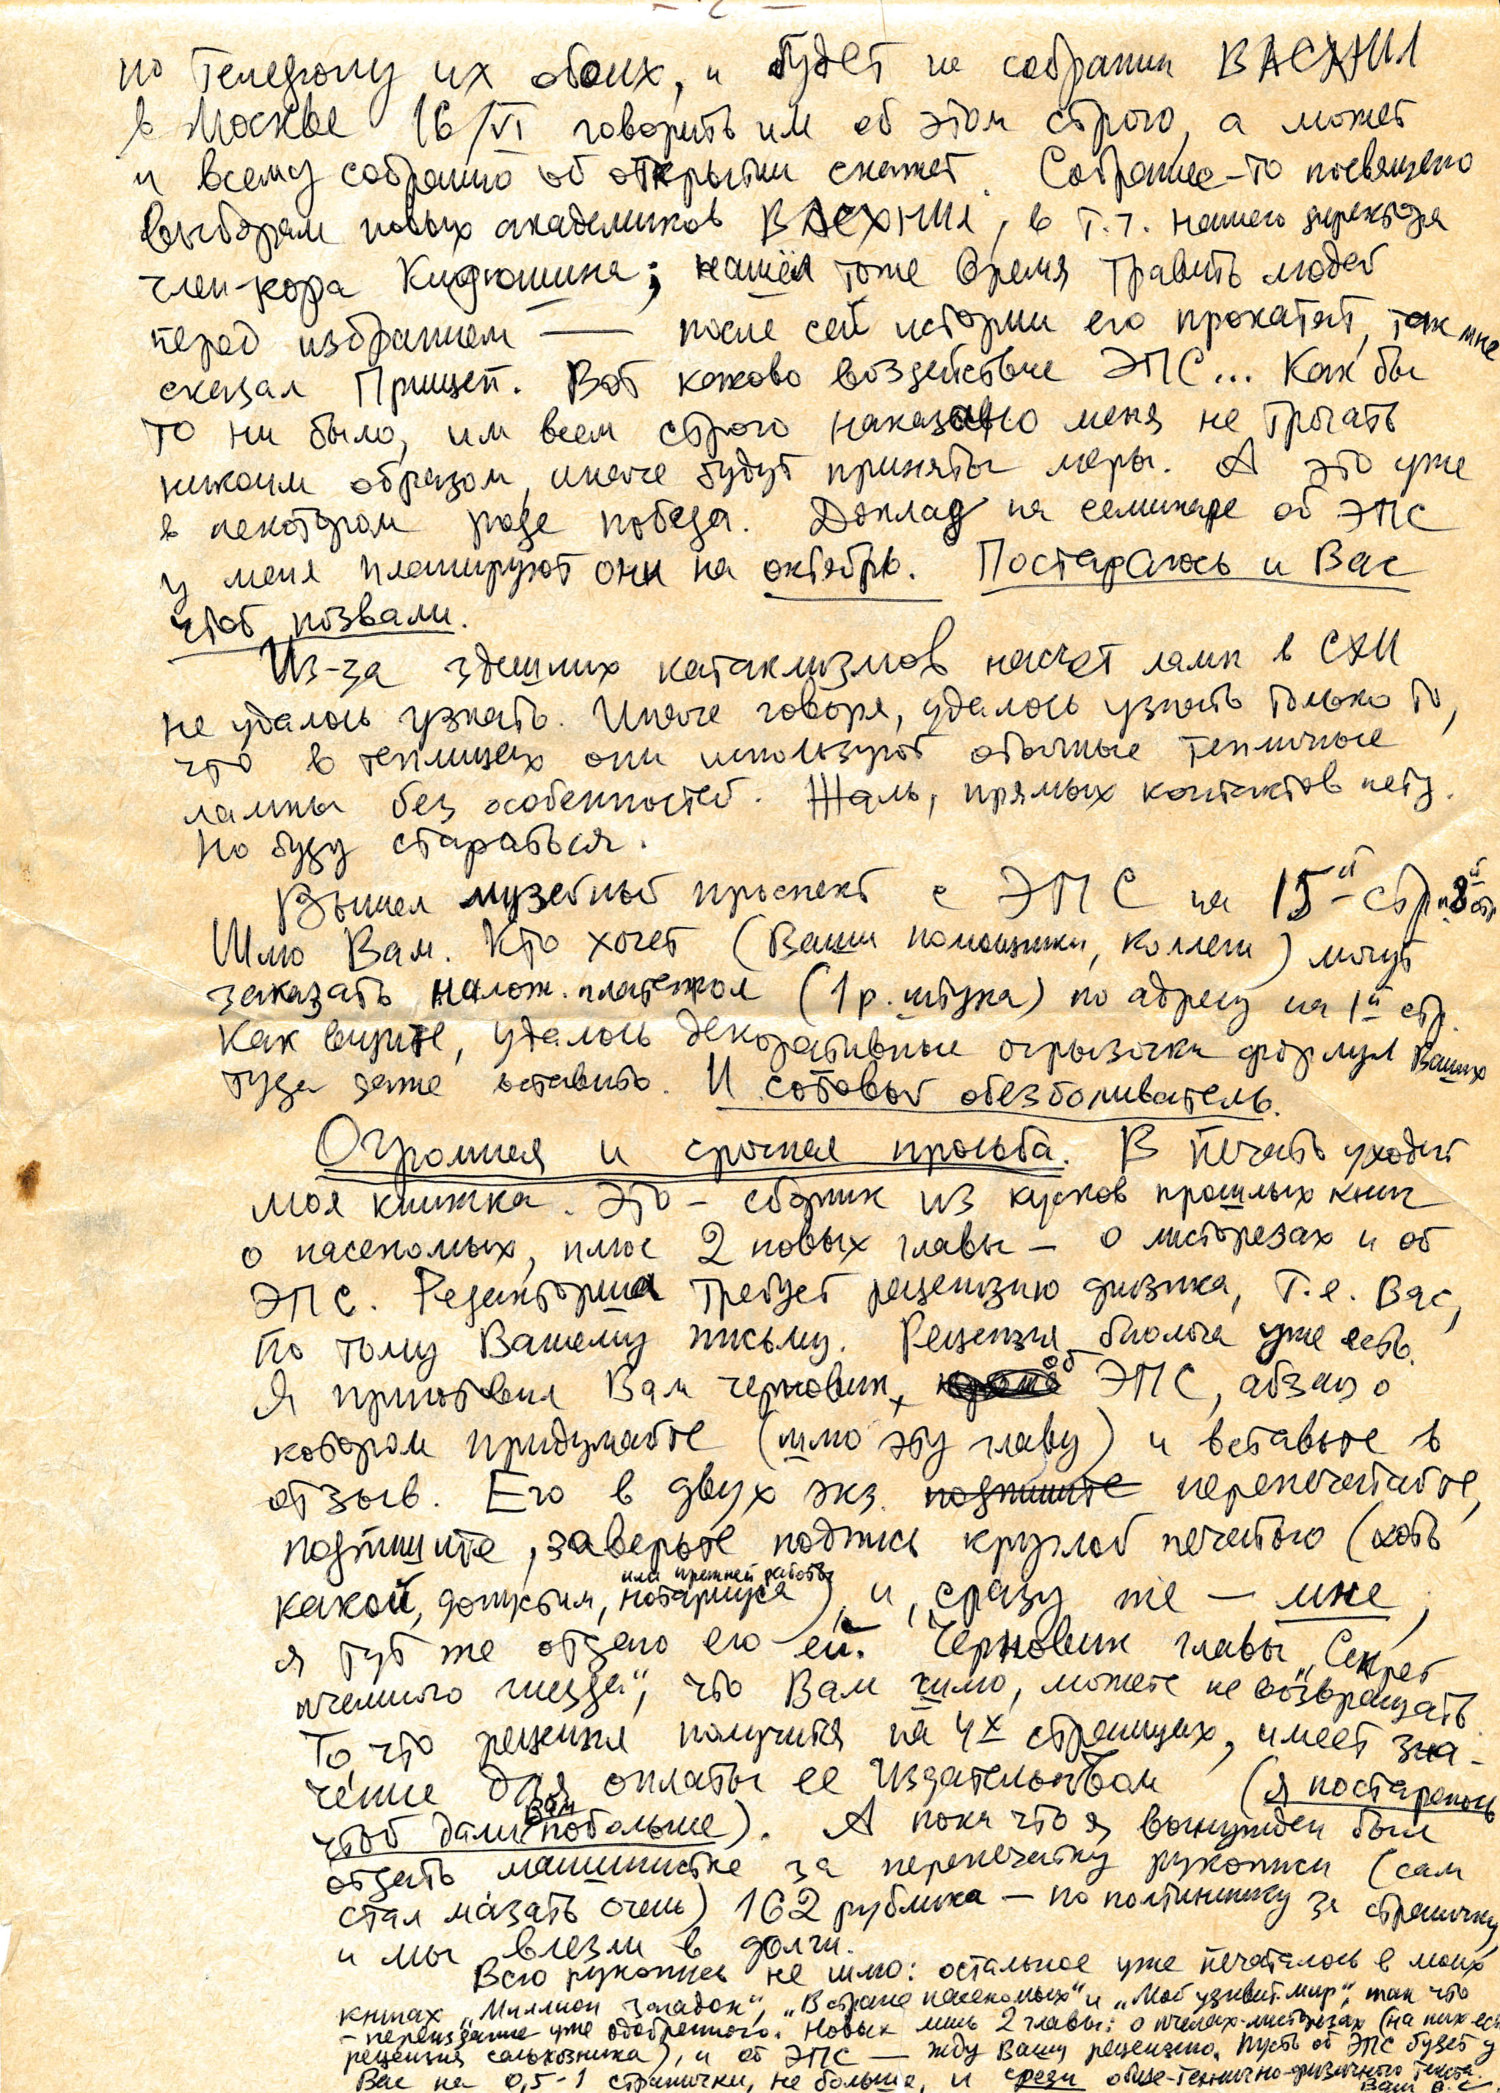 - 2 -
по телефону их обоих, и будет на собрании ВАСХНИЛ
в Москве 16/VI говорить им об этом строго, а может
и всему собранию об открытии скажет. Собрание-то посвящено
выборам новых академиков ВАСХНИЛ, в т.ч. нашего директора
член-кора Кирюшина; нашёл тоже время травить людей
перед избранием — после сей истории его прокатят, так мне
сказал Прищеп. Вот каково воздействие ЭПС... Как бы
то ни было, им всем строго наказано меня не трогать
никоим образом, иначе будут приняты меры. А это уже
в некотором роде победа. Доклад на семинаре об ЭПС
у меня планируют они на октябрь. Постараюсь и Вас
чтоб позвали.
Из-за здешних катаклизмов насчёт ламп в СХИ
не удалось узнать. Иначе говоря, удалось узнать только то,
что в теплицах они используют обычные тепличные
лампы без особенностей. Жаль, прямых контактов нету.
Но буду стараться.
Вышел музейный проспект с ЭПС на 15й стр и 8й стр
Шлю Вам. Кто хочет (Ваши помощники, коллеги) могут
заказать налож. платежом (1 р. штука) по адресу на 1й стр.
Как видите, удалось декоративные огрызочки формул Ваших
туда даже вставить. И сотовый обезболиватель.
Огромная и срочная просьба. В печать уходит
моя книжка. Это – сборник из кусков прошлых книг
о насекомых, плюс 2 новых главы – о листорезах и об
ЭПС. Редакторша требует рецензию физика, т.е. Вас,
по тому Вашему письму. Рецензия биолога уже есть.
Я приготовил Вам черновик, об ЭПС, абзац о
котором придумайте (шлю эту главу) и вставьте в
отзыв. Его в двух экз. подпишите перепечатайте,
подпишите, заверьте подпись круглой печатью (хоть
какой, допустим, нотариуса или прежней работы), и, сразу же – мне,
я тут же отдаю его ей. Черновик главы „Секрет
пчелиного гнезда“, что Вам шлю, можете не возвращать.
То что рецензия получится на 4х страницах, имеет зна-
чение для оплаты ее Издательством (я постараюсь
чтоб дали Вам побольше). А пока что я вынужден был
отдать машинистке за перепечатку рукописи (сам
стал мазать очень) 162 рублика – по полтиннику за страничку,
и мы влезли в долги.
Всю рукопись не шлю: остальное уже печаталось в моих
книгах „Миллион загадок“, „В стране насекомых“ и „Мой удивит. мир“, так что
– переиздание уже одобренного. Новых лишь 2 главы: о пчелах-листорезах (на них есть
рецензия сельхозника), и об ЭПС — жду Вашу рецензию. Пусть об ЭПС будет у
Вас на 0,5-1 странички, не больше, и среди обще-технично-физичного текста.
Ваш В.С